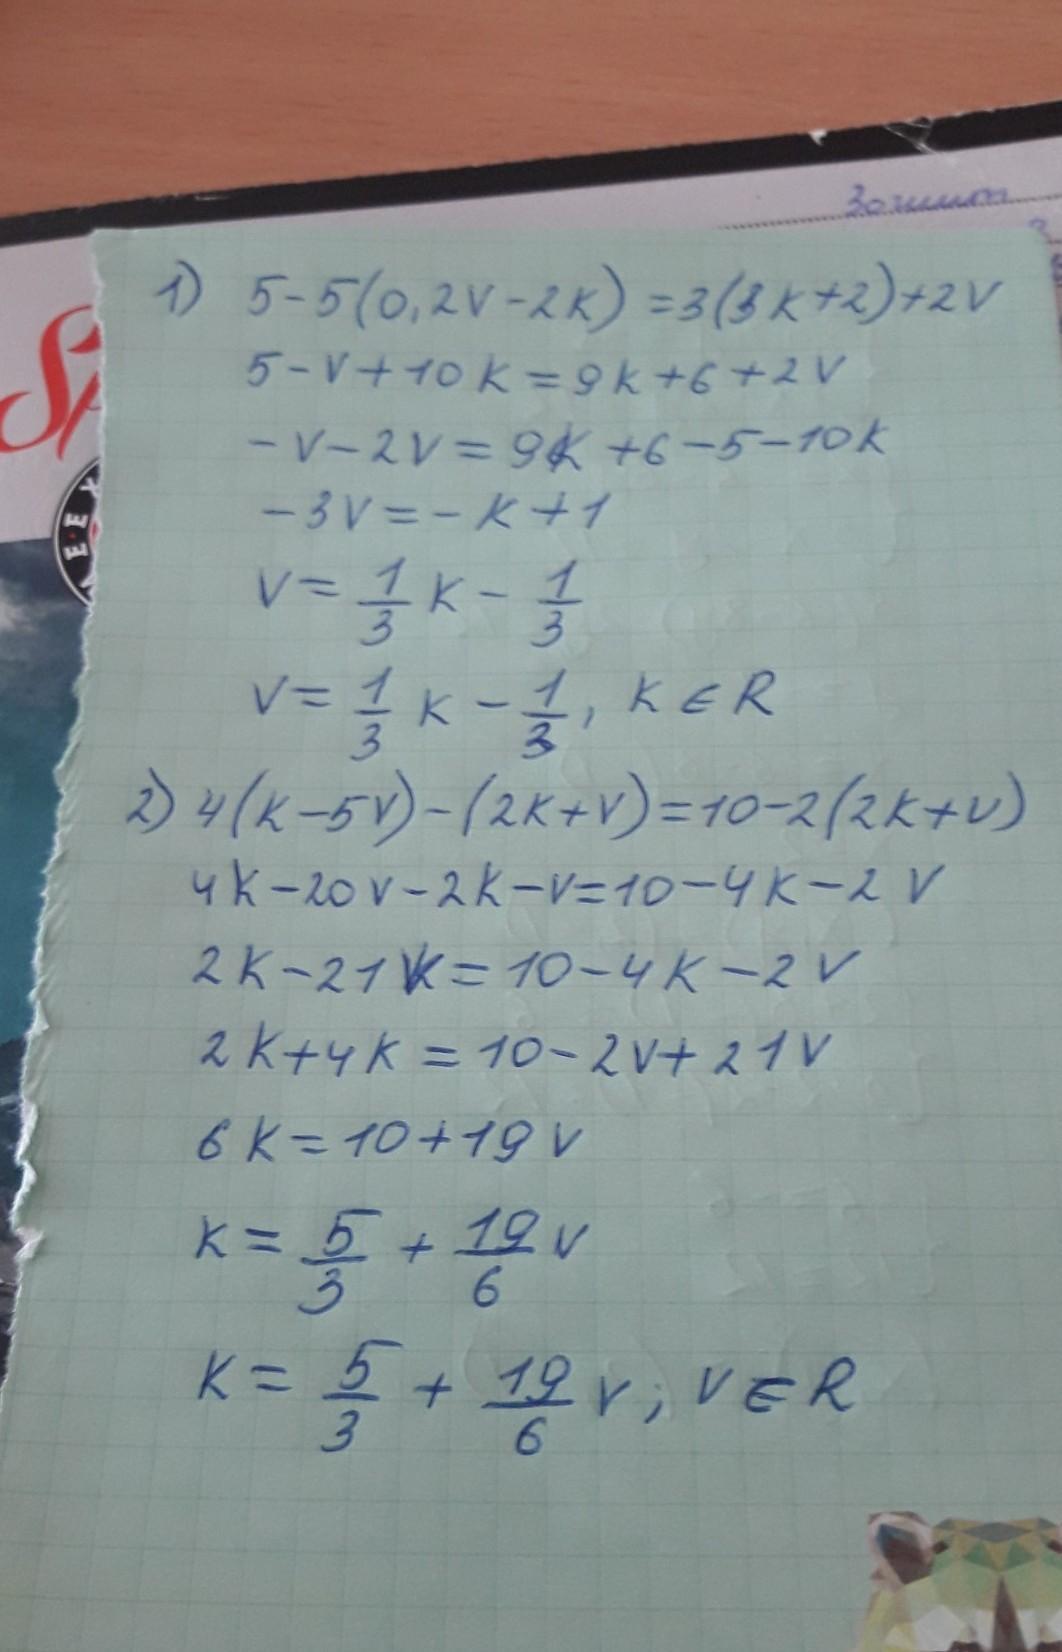 1) 5-5(0,2v-2k)=3(3k+2)+2v
5-v+10k=9k+6+2v
-v-2v=9k+6-5-10k
-3v=-k+1
v=1/3 k - 1/3
v=1/3 k - 1/3, k∈R
2) 4(k-5v)-(2k+v)=10-2(2k+v)
4k-20v-2k-v=10-4k-2v
2k-21v=10-4k-2v
2k+4k=10-2v+21v
6k=10+19v
k=5/3+19/6 v
k=5/3+19/6 v; v∈R